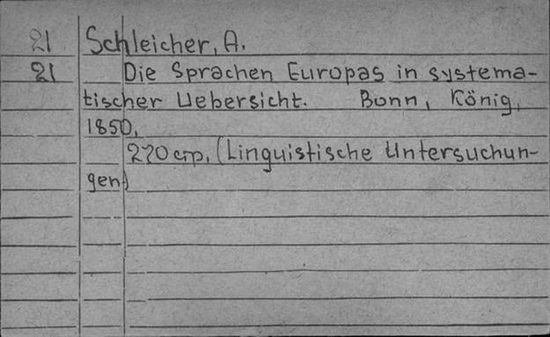 21 Schleicher, A.
21 Die Sprachen Europas in systema-
tischer Uebersicht. Bonn, König,
1850.
270 cтр. (Linguistische Untersuchun-
gen)